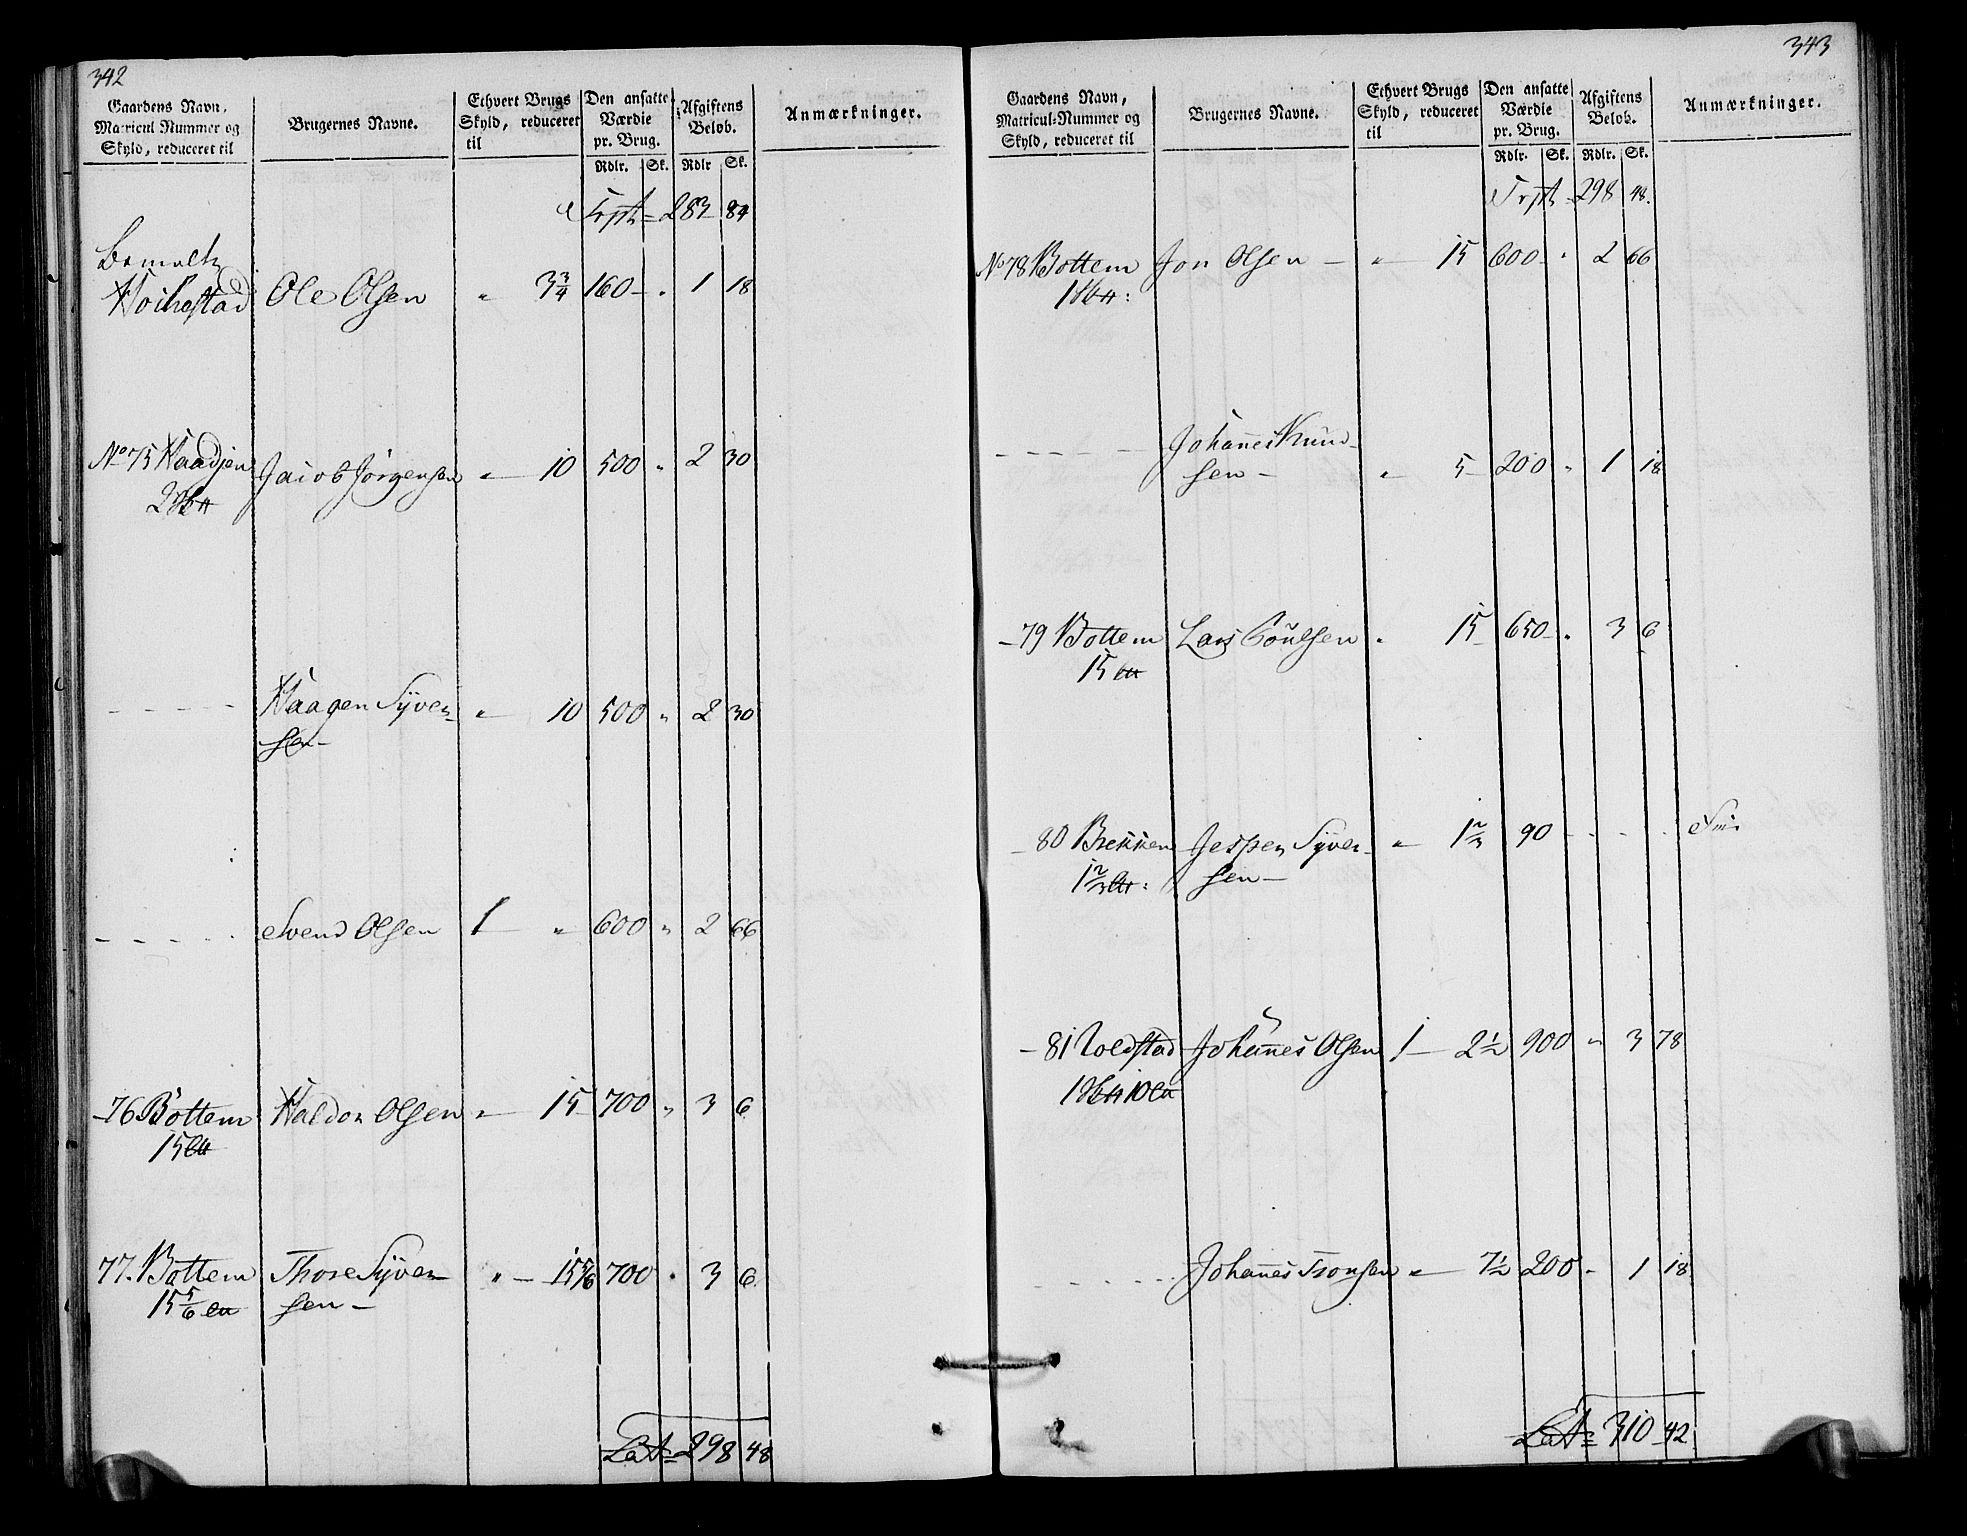 342
Gaardens Navn, Matricul Nummer og Skyld, reduceret til
Brugernes Navne.
Ethvert Brugs Skyld, reduceret til
Den ansatte Værdie pr. Brug.
Afgiftens Belob.
Anmærkninger.
Rdlr. Sk. Rdlr Sk.
Trspt = 283 84
Ole Olsen " 3 3/4 160 - " 1 18
No 75 Haadjem Jacob Jörgensen " - 10 500 " 2 30
2
- - - - - Haagen Syver- " - 10 500 " 2 30
sen -
- - - - - Svend Olsen 1 - " 600 " 2 66
- 76 Bottem Haldor Olsen " - 15 700 " 3 6
15
77. Bottem Thore Syver- " - 15 5/6 700 " 3 6
15 5/6 sen -
Lat = 298 48
343
Gaardens Navn, Matricul-Nummer og Skyld, reduceret til
Brugernes Navne.
Ethvert Brugs Skyld, reduceret til
Den ansatte Værdie pr. Brug.
Afgiftens Belob.
Anmærkninger.
Rdlr. Sk. Rdlr. Sk.
Trspt = 298 48.
No 78 Bottem Jon Olsen - " - 15 600 - " 2 66
1
- - - - - Johannes Knud-
sen - " - 5 200 " 1 18
- 79 Bottem Lars Poulsen " 15 650 - " 3 6
15
- 80 Brekken Jesper Syver- " - 1 2/3 90 - - - - Fri
1 2/3 sen -
- 81 Voldstad Johannes Olsen 1 - 2 1/2 900 " 3 78
1 10
- - - - - Johannes Tronsen " - 7 1/2 200 - 1 18
Lat = 310 42